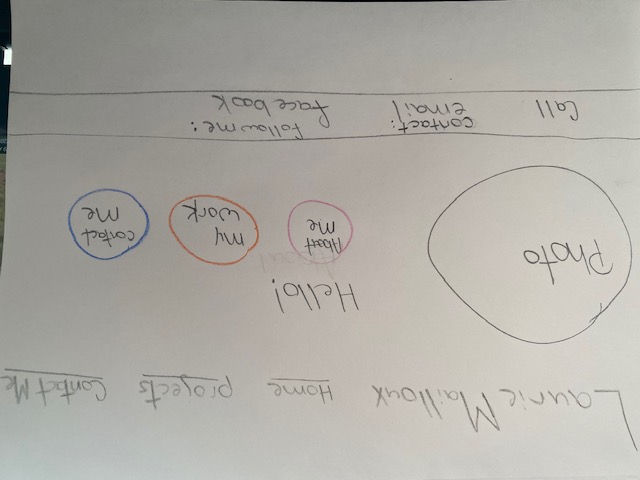 Laurie Mailloux Home projects Contact Me
Photo
Hello!
About
Me
my
work
contact
me
Call
contact:
email
follow me:
facebook